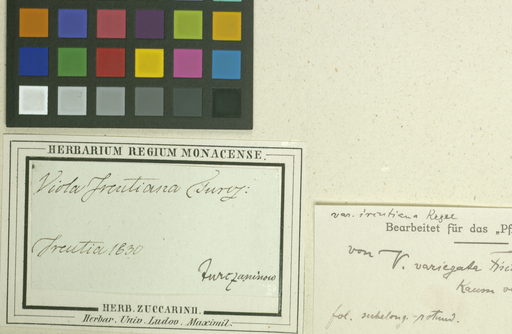 HERBARIUM REGIUM MONACENSE.
Viola Ircutiana Turcz:
Ircutia 1830
Turczaninow
HERB. ZUCCARINII.
Herbar. Univ. Ludov. Maximil.
var. ircutiana Regel
Bearbeitet für das „Pf
von V. variegata Fisch
Kaum
fol. suboblong-rotund.